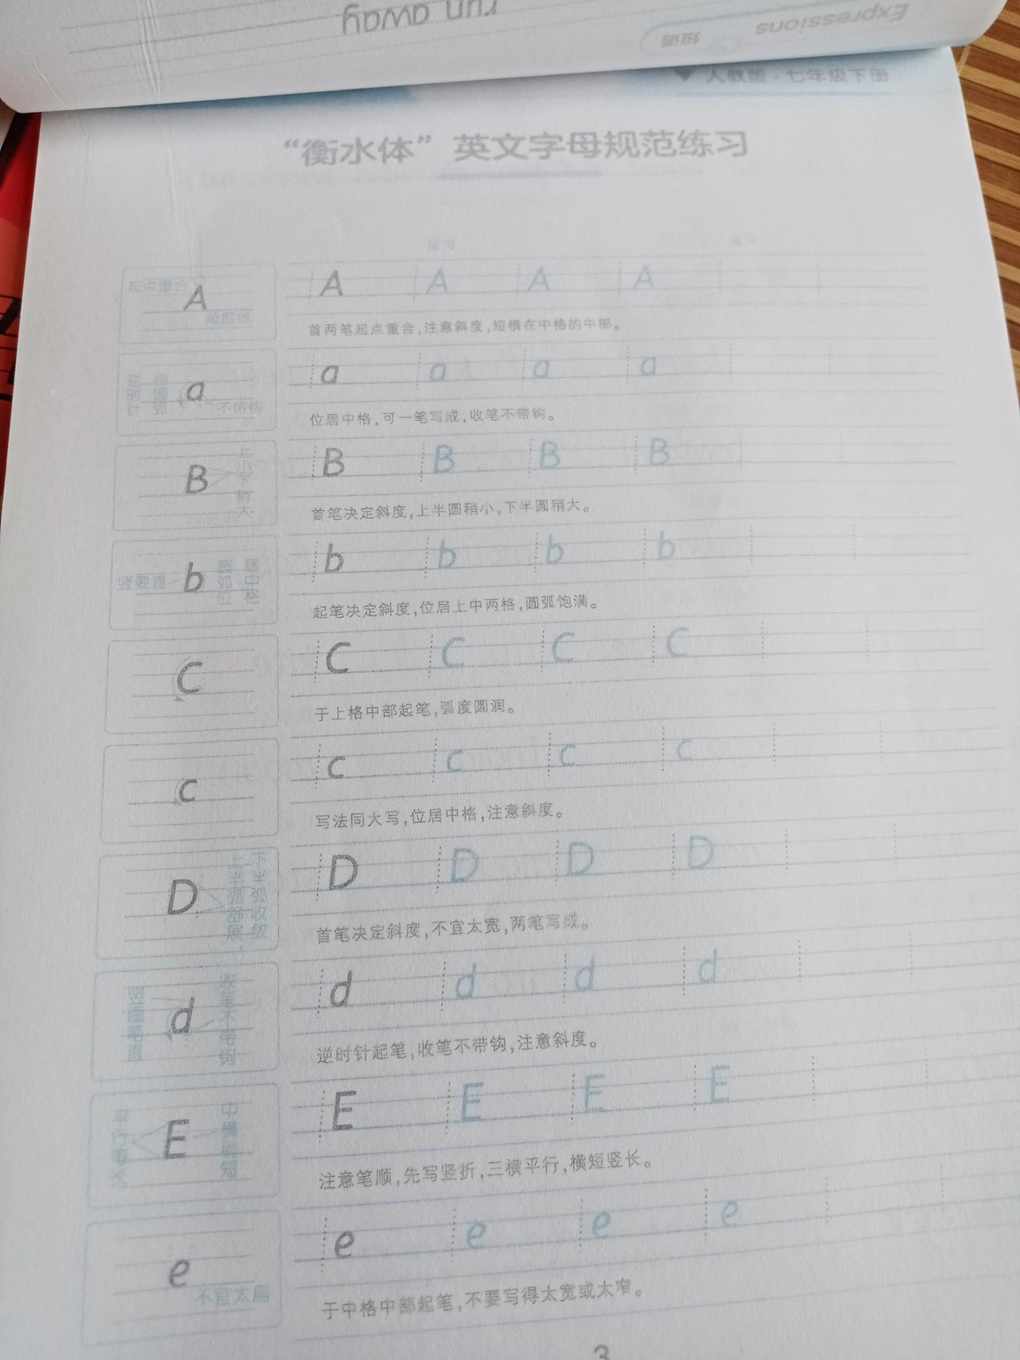 run away
Expressions 短语
人教版·七年级下册
“衡水体”英文字母规范练习
A A A A A
首两笔起点重合,注意斜度,短横在中格的中部。
a a a a a
不带钩
位居中格,可一笔写成,收笔不带钩。
B B B B B
首笔决定斜度,上半圆稍小,下半圆稍大。
b b b b b
竖要直
居中格
起笔决定斜度,位居上中两格,圆弧饱满。
C C C C C
于上格中部起笔,弧度圆润。
c c c c c
写法同大写,位居中格,注意斜度。
D D D D D
首笔决定斜度,不宜太宽,两笔写成。
d d d d d
收笔不带钩
逆时针起笔,收笔不带钩,注意斜度。
E E E E E
注意笔顺,先写竖折,三横平行,横短竖长。
e e e e e
不宜太扁
于中格中部起笔,不要写得太宽或太窄。
3